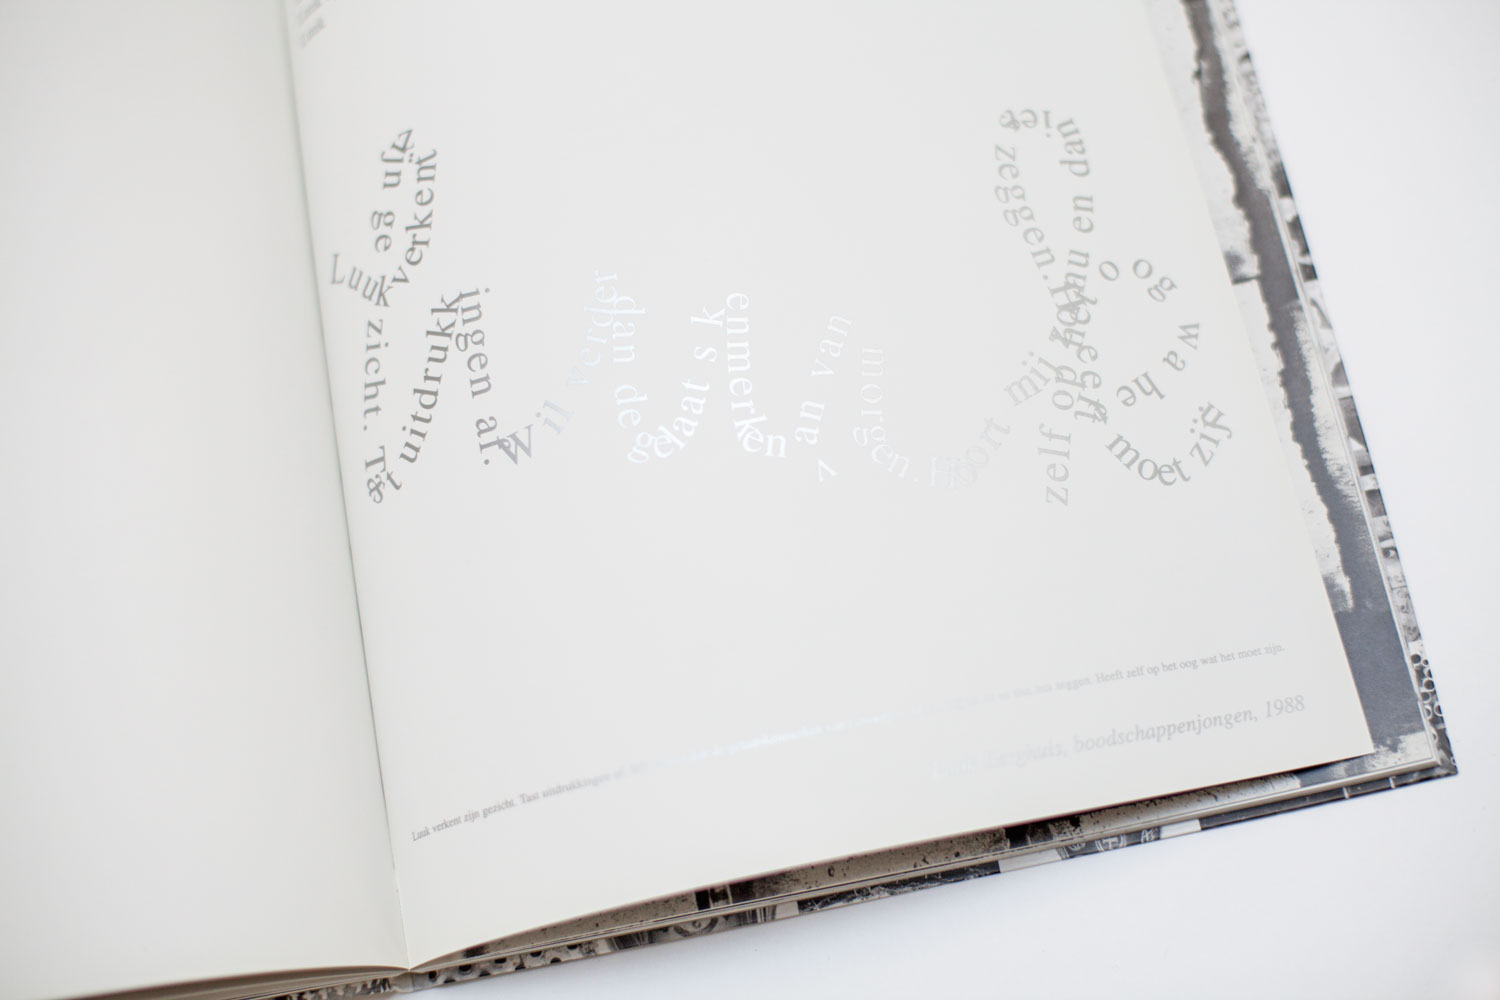 Luuk verkent zijn gezicht. Tast uitdrukkingen af. Wil verder dan de gelaatskenmerken van vanmorgen. Hoort mij nu en dan iets zeggen. Heeft zelf op het oog wat het moet zijn.
Luuk verkent zijn gezicht. Tast uitdrukkingen af. zeggen. Heeft zelf op het oog wat het moet zijn.
boodschappenjongen, 1988